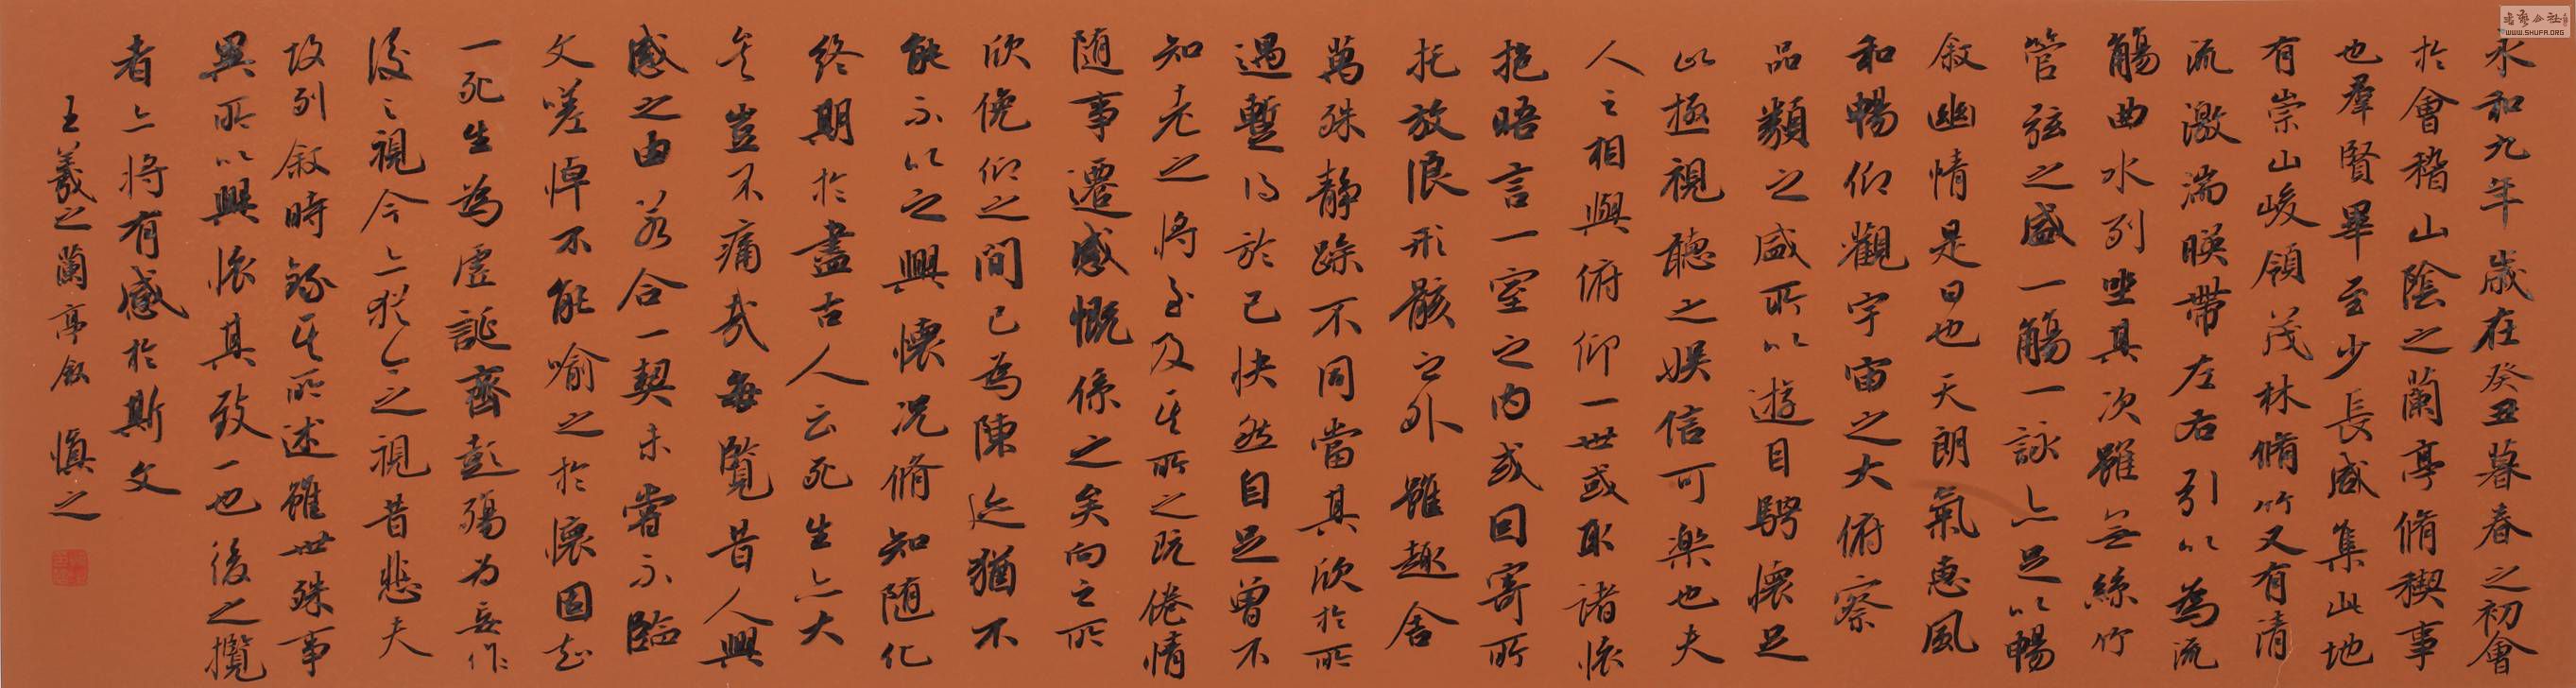 永和九年歲在癸丑暮春之初會
於會稽山陰之蘭亭脩稧事
也羣賢畢至少長咸集此地
有崇山峻領茂林脩竹又有清
流激湍暎帶左右引以為流
觴曲水列坐其次雖無絲竹
管弦之盛一觴一詠亦足以暢
叙幽情是日也天朗氣惠風
和暢仰觀宇宙之大俯察
品類之盛所以遊目騁懷足
以極視聽之娛信可樂也夫
人之相與俯仰一世或取諸懷
抱晤言一室之內或因寄所
托放浪形骸之外雖趣舍
萬殊静躁不同當其欣於所
遇蹔得於己怏然自足曾不
知老之將至及其所之既倦情
随事遷感慨係之矣向之所
欣俛仰之間已為陳迹猶不
能不以之興懷况脩短随化
終期於盡古人云死生亦大
矣豈不痛哉每覽昔人興
感之由若合一契未嘗不臨
文嗟悼不能喻之於懷固知
一死生為虛誕齊彭殤為妄作
後之視今亦猶今之視昔悲夫
故列叙時錄其所述雖世殊事
異所以興懷其致一也後之攬
者亦將有感於斯文
王羲之蘭亭叙 慎之
WWW.SHUFA.ORG